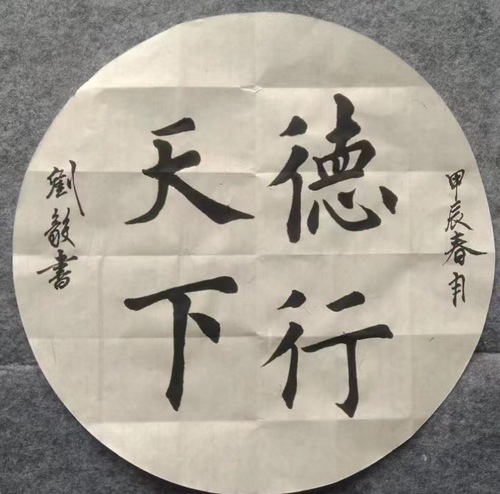 甲辰春月
德行
天下
劉敏書